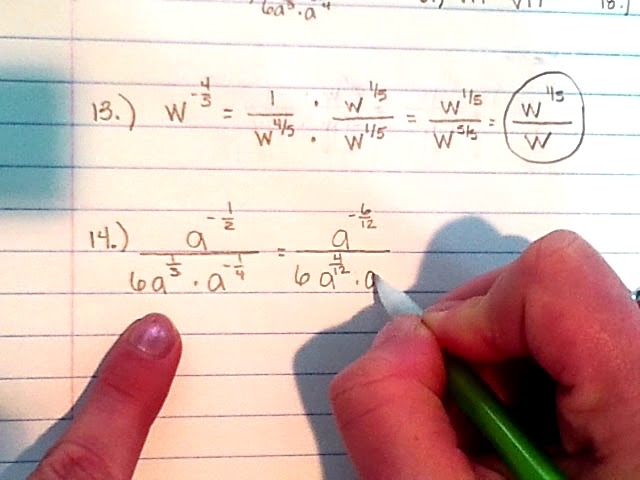 6a³·a⁴
13.) w^(-4/3) = 1/w^(4/5) · w^(1/5)/w^(1/5) = w^(1/5)/w^(5/5) = w^(1/5)/w
14.) a^(-1/2)/(6a^(1/3)·a^(-1/4)) = a^(-6/12)/(6a^(4/12)·a